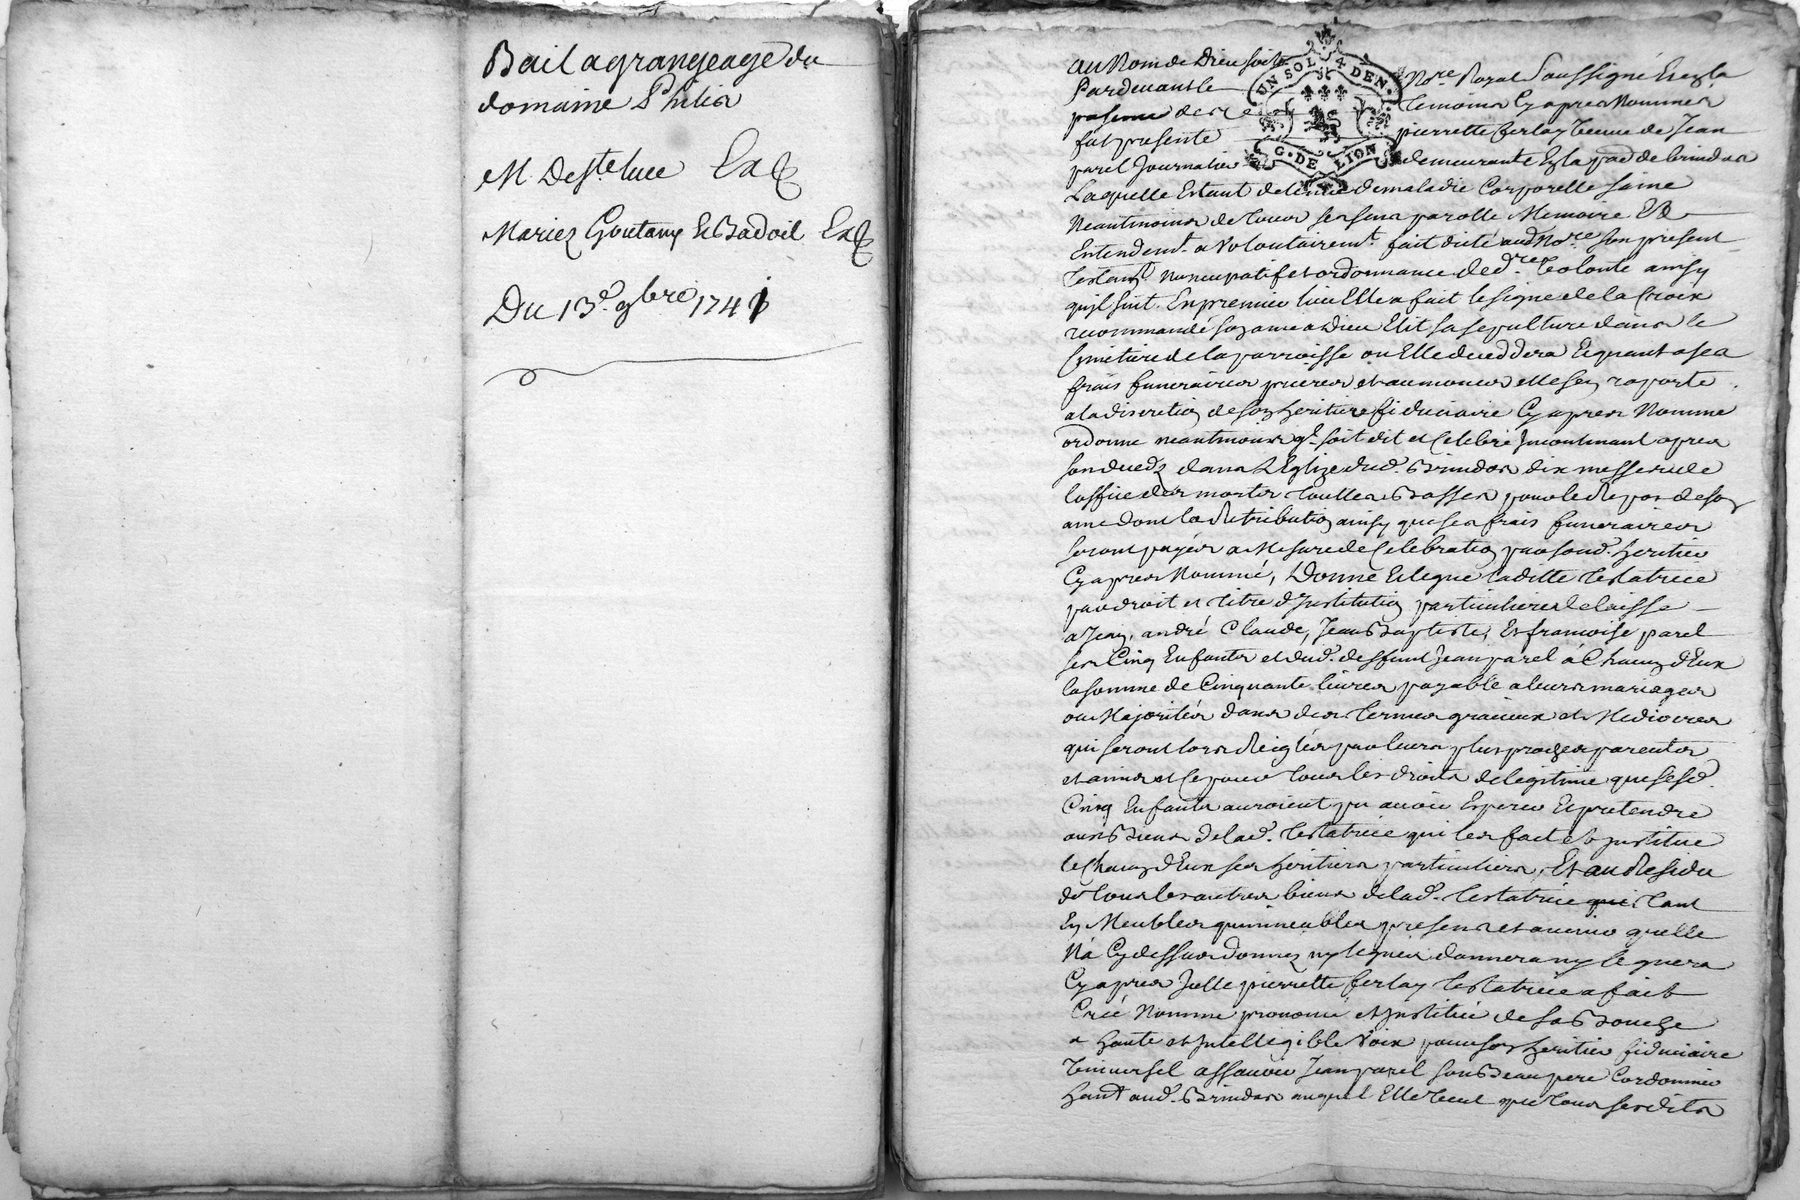 Bail agrangeage du
domaine Philis
M. De Ste luce Ex
Mariez Goutany & Badoil Ex
Du 13e. 9bre 1741
UN SOL 4 DEN.
G. DE LION
au Nom de Dieu soit
Pardevant le Nore Royal Soussigné Et les
temoins Cy apres Nommes
fut presente pierrette ferlay veuve de Jean
parel Journalier demeurante En la psse de brindas
Laquelle Estant detenue de maladie Corporelle saine
Neantmoins de tous ses sens parolle Memoire Et
Entendemt. a volontairemt. fait dicté aud Nore son present
testamt nuncupatif et ordonnance de dre. volonté ainsy
quil suit. En premier lieu Elle a fait le signe de la Croix
recommandé son ame a Dieu Elit sa sepulture dans le
Cimetiere de la parroisse ou Elle deceddera Et quant a ses
frais funeraires prieres et aumones elle sen raporte
a la discretion de son heritier fiduciaire Cy apres Nomme
ordonne neantmoins ql. soit dit et Celebré Incontinant apres
son decedz dans L'Eglize dud. Brindas dix messes de
l'office des morts touttes Basses pour le repos de son
ame dont la retribution ainsy que ses frais funeraires
seront payés a Mesure de Celebration par sond. heritier
Cy apres Nommé, Donne Et legue laditte testatrice
par droit et titre d'Institution particuliere delaisse
a Jean, andré Claude, Jean Baptiste, Et francoise parel
ses Cinq Enfants et dud. deffunt Jean parel á Chacun d'Eux
la somme de Cinquante livres payable a leurs mariages
ou Majorités dans des termes gracieux et Mediocres
qui seront lors reiglés par leurs plus proches parents
et amis et Ce pour tous les droits de legitime que sesd.
Cinq Enfants auroient pu avoir Esperer Et pretendre
aux Biens de lad. testatrice qui les fait et Institue
Et Chacun d'Eux ses heritiers particuliers, Et au Residu
de tous les autres biens de lad. testatrice qui tant
En Meubles quimmeubles presens et avenir quelle
Ná Cy dessus donnez ny legués donnera ny leguera
Cy apres Icelle pierrette ferlay testatrice a fait
Créé Nommé prononcé et Institué de sa Bouche
a haute et Intelligible Voix pour son heritier fiduciaire
universel assavoir Jean parel son Beau pere Cordonnier
hant aud. Brindas auquel Elle veut que tous sesdits